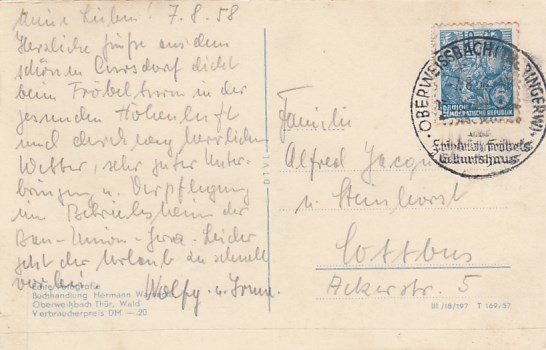 Meine Lieben! 7.8.58
Herzliche Grüße aus dem
schönen Cursdorf dicht
beim Fröbelturm in der
gesunden Höhenluft
und durchweg herrlichem
Wetter, sehr guter Unter-
bringung u. Verpflegung
im Betriebsheim der
Bau-Union-Gera. Leider
geht der Urlaub zu schnell
vorbei. Wolfg. u.
Echte Fotografie
Buchhandlung Hermann
Oberweißbach-Thür. Wald
Verbraucherpreis DM -.20
DTVL
OBERWEISSBACH (THÜRINGERW)
Friedrich Fröbels
Geburtshaus
DEUTSCHE
DEMOKRATISCHE REPUBLIK
6
Familie
Alfred
u. Steinhorst
Cottbus
Ackerstr. 5
III/18/197 T 169/57